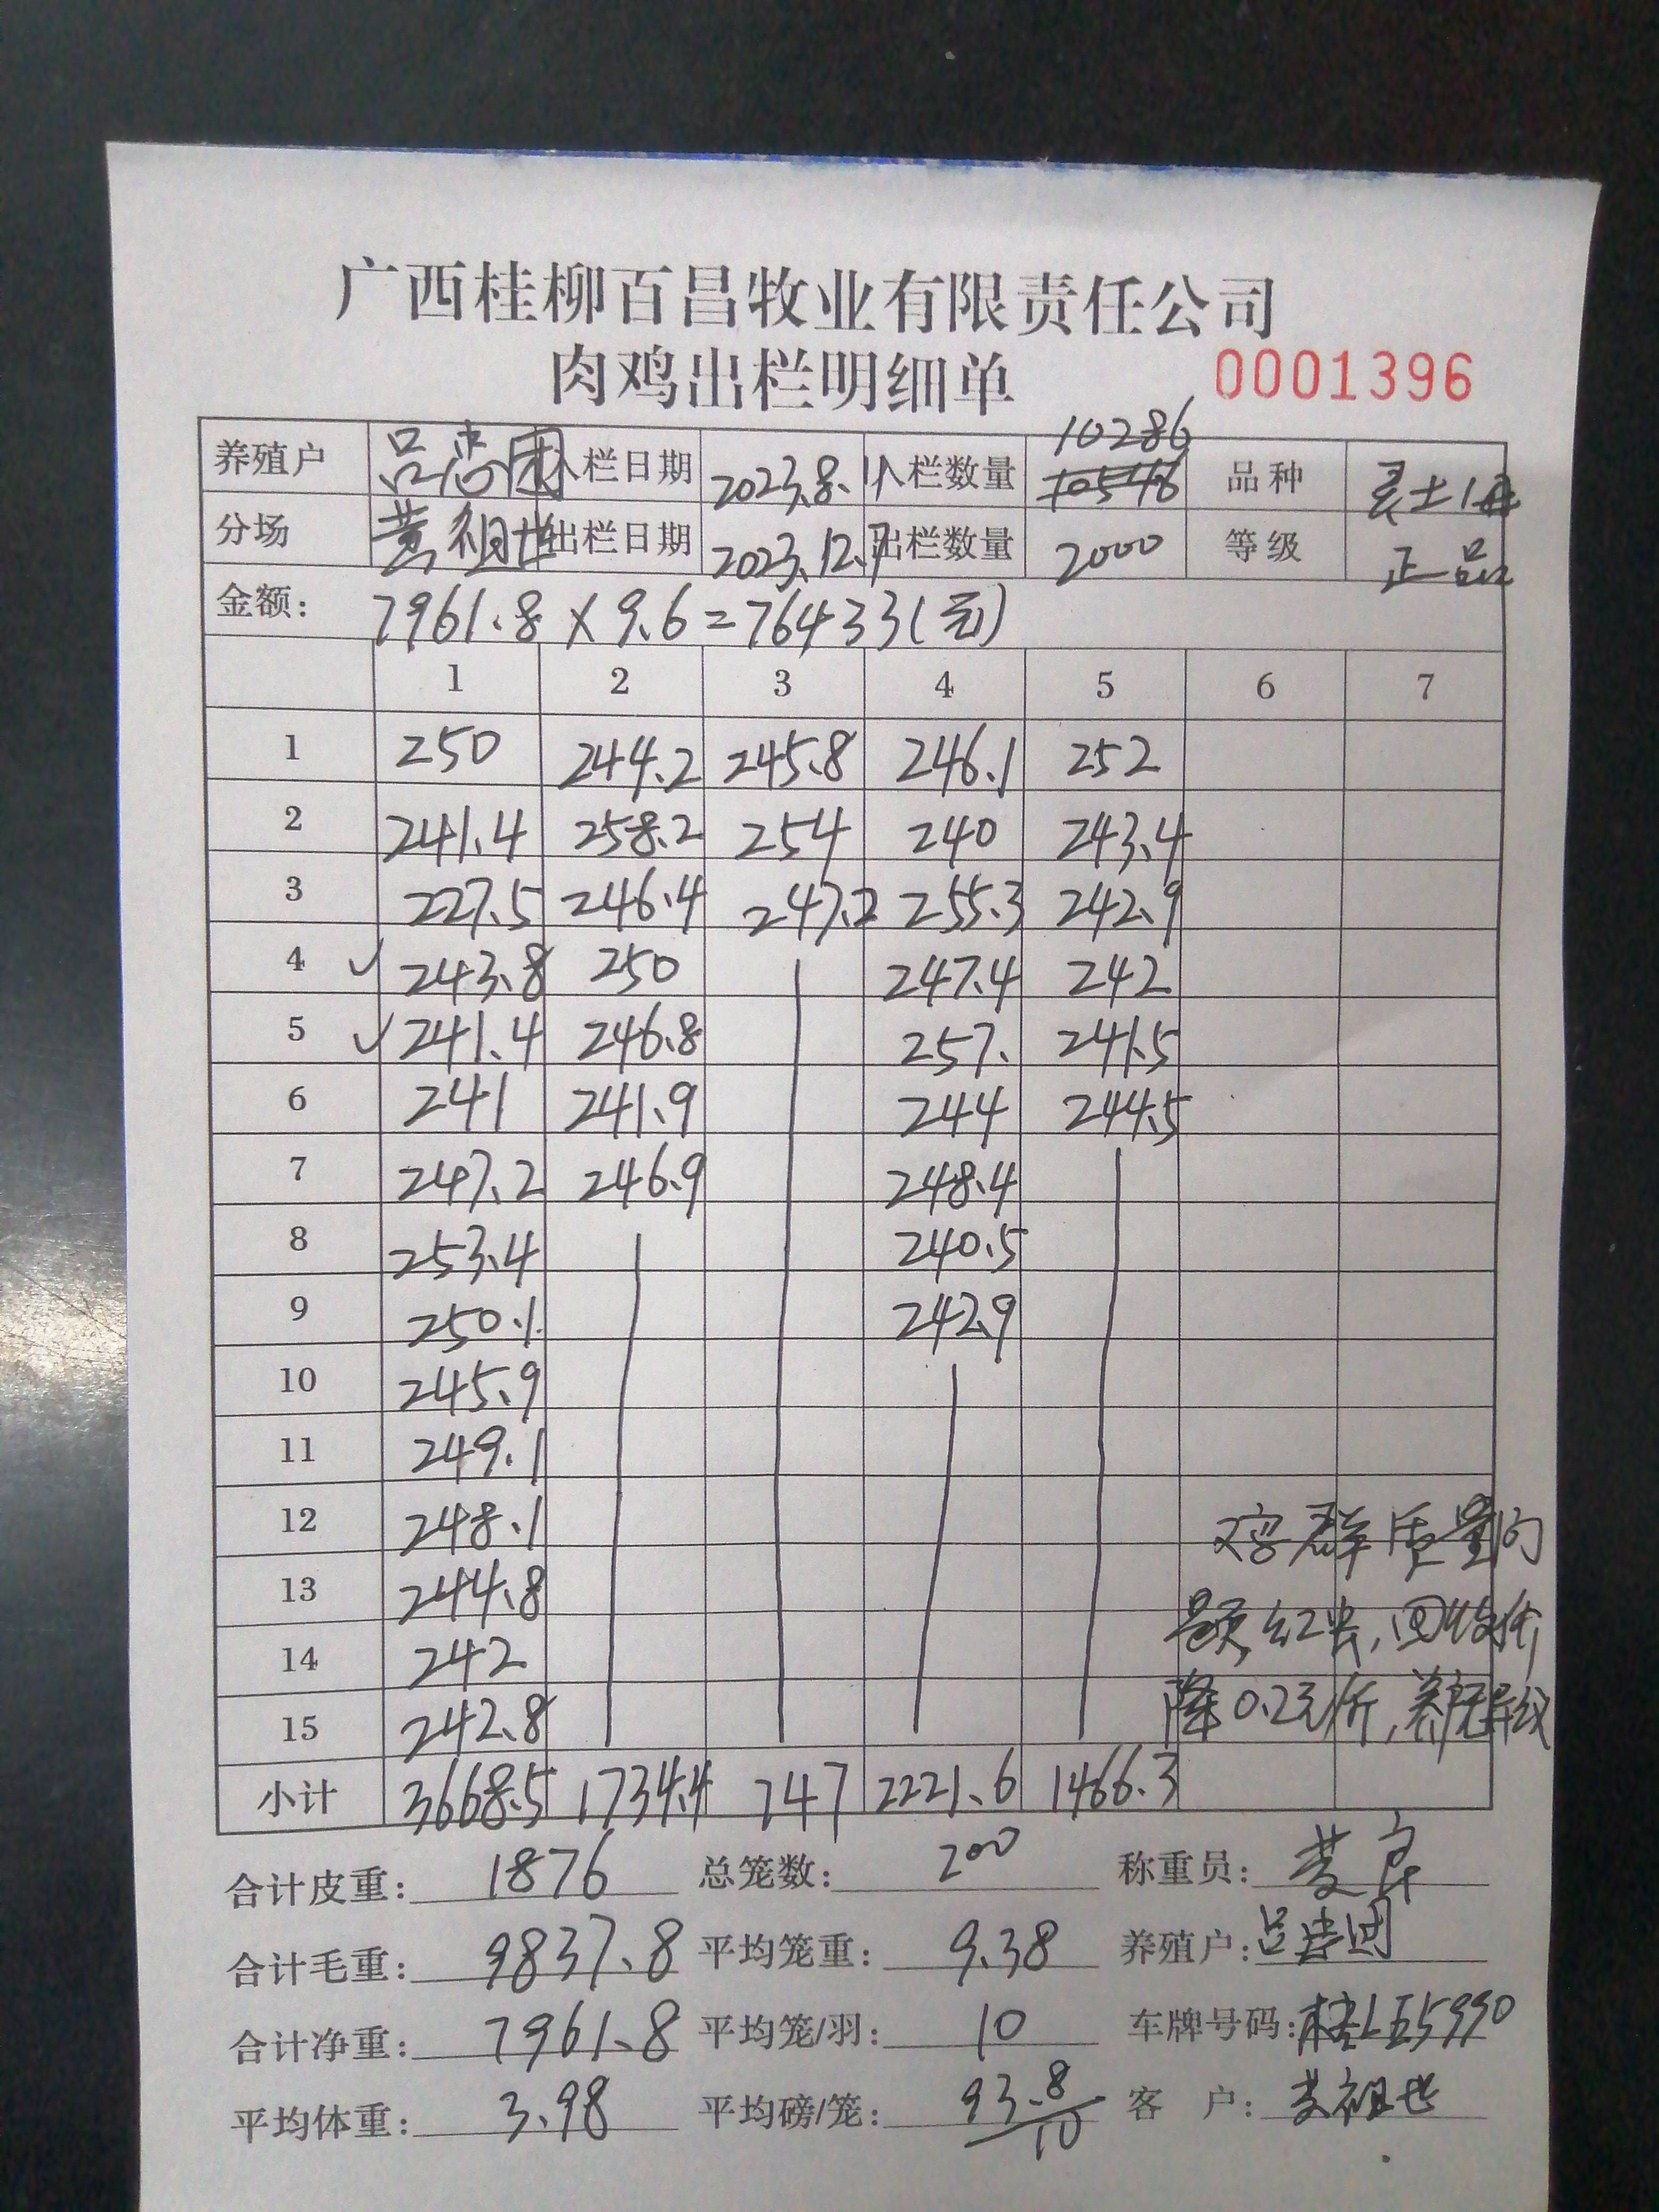 广西桂柳百昌牧业有限责任公司
肉鸡出栏明细单 0001396
10286
养殖户 吕忠团 入栏日期 2023.8.1 入栏数量 10546 品种
分场 黄祖世 出栏日期 2023.12.7 出栏数量 2000 等级 正品
金额: 7961.8×9.6=76433(元)
1 2 3 4 5 6 7
1 250 244.2 245.8 246.1 252
2 241.4 258.2 254 240 243.4
3 227.5 246.4 247.2 255.3 242.9
4 ✓ 243.8 250 247.4 242
5 ✓ 241.4 246.8 257. 241.5
6 241 241.9 244 244.5
7 247.2 246.9 248.4
8 253.4 240.5
9 250.1 242.9
10 245.9
11 249.1
12 248.1 鸡群质量问
13 244.8 题,红点,回收价
14 242
15 242.8 降0.2元/斤,养户无异议
小计 3668.5 1734.4 747 2221.6 1466.3
合计皮重: 1876 总笼数: 200 称重员:
合计毛重: 9837.8 平均笼重: 9.38 养殖户: 吕忠团
合计净重: 7961.8 平均笼/羽: 10 车牌号码: 桂L55990
平均体重: 3.98 平均磅/笼: 93.8/10 客户: 黄祖世